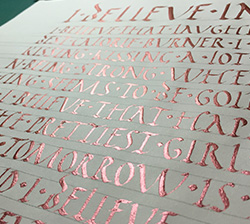 I BELIEVE IN
BELIEVE THAT LAUGH
CALORIE BURNER I
KISSING KISSING A LOT
N BEING STRONG WHE
ING SEEMS TO BE GOI
I BELIEVE THAT HAP
HE PRETTIEST GIRL
TOMORROW IS
D I BELIEVE